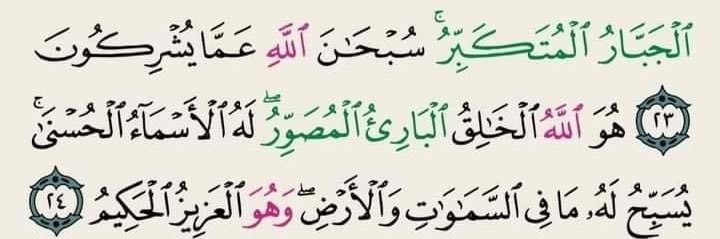 ٱلۡجَبَّارُ ٱلۡمُتَكَبِّرُۚ سُبۡحَٰنَ ٱللَّهِ عَمَّا يُشۡرِكُونَ
٢٣ هُوَ ٱللَّهُ ٱلۡخَٰلِقُ ٱلۡبَارِئُ ٱلۡمُصَوِّرُۖ لَهُ ٱلۡأَسۡمَآءُ ٱلۡحُسۡنَىٰۚ
يُسَبِّحُ لَهُۥ مَا فِي ٱلسَّمَٰوَٰتِ وَٱلۡأَرۡضِۖ وَهُوَ ٱلۡعَزِيزُ ٱلۡحَكِيمُ ٢٤